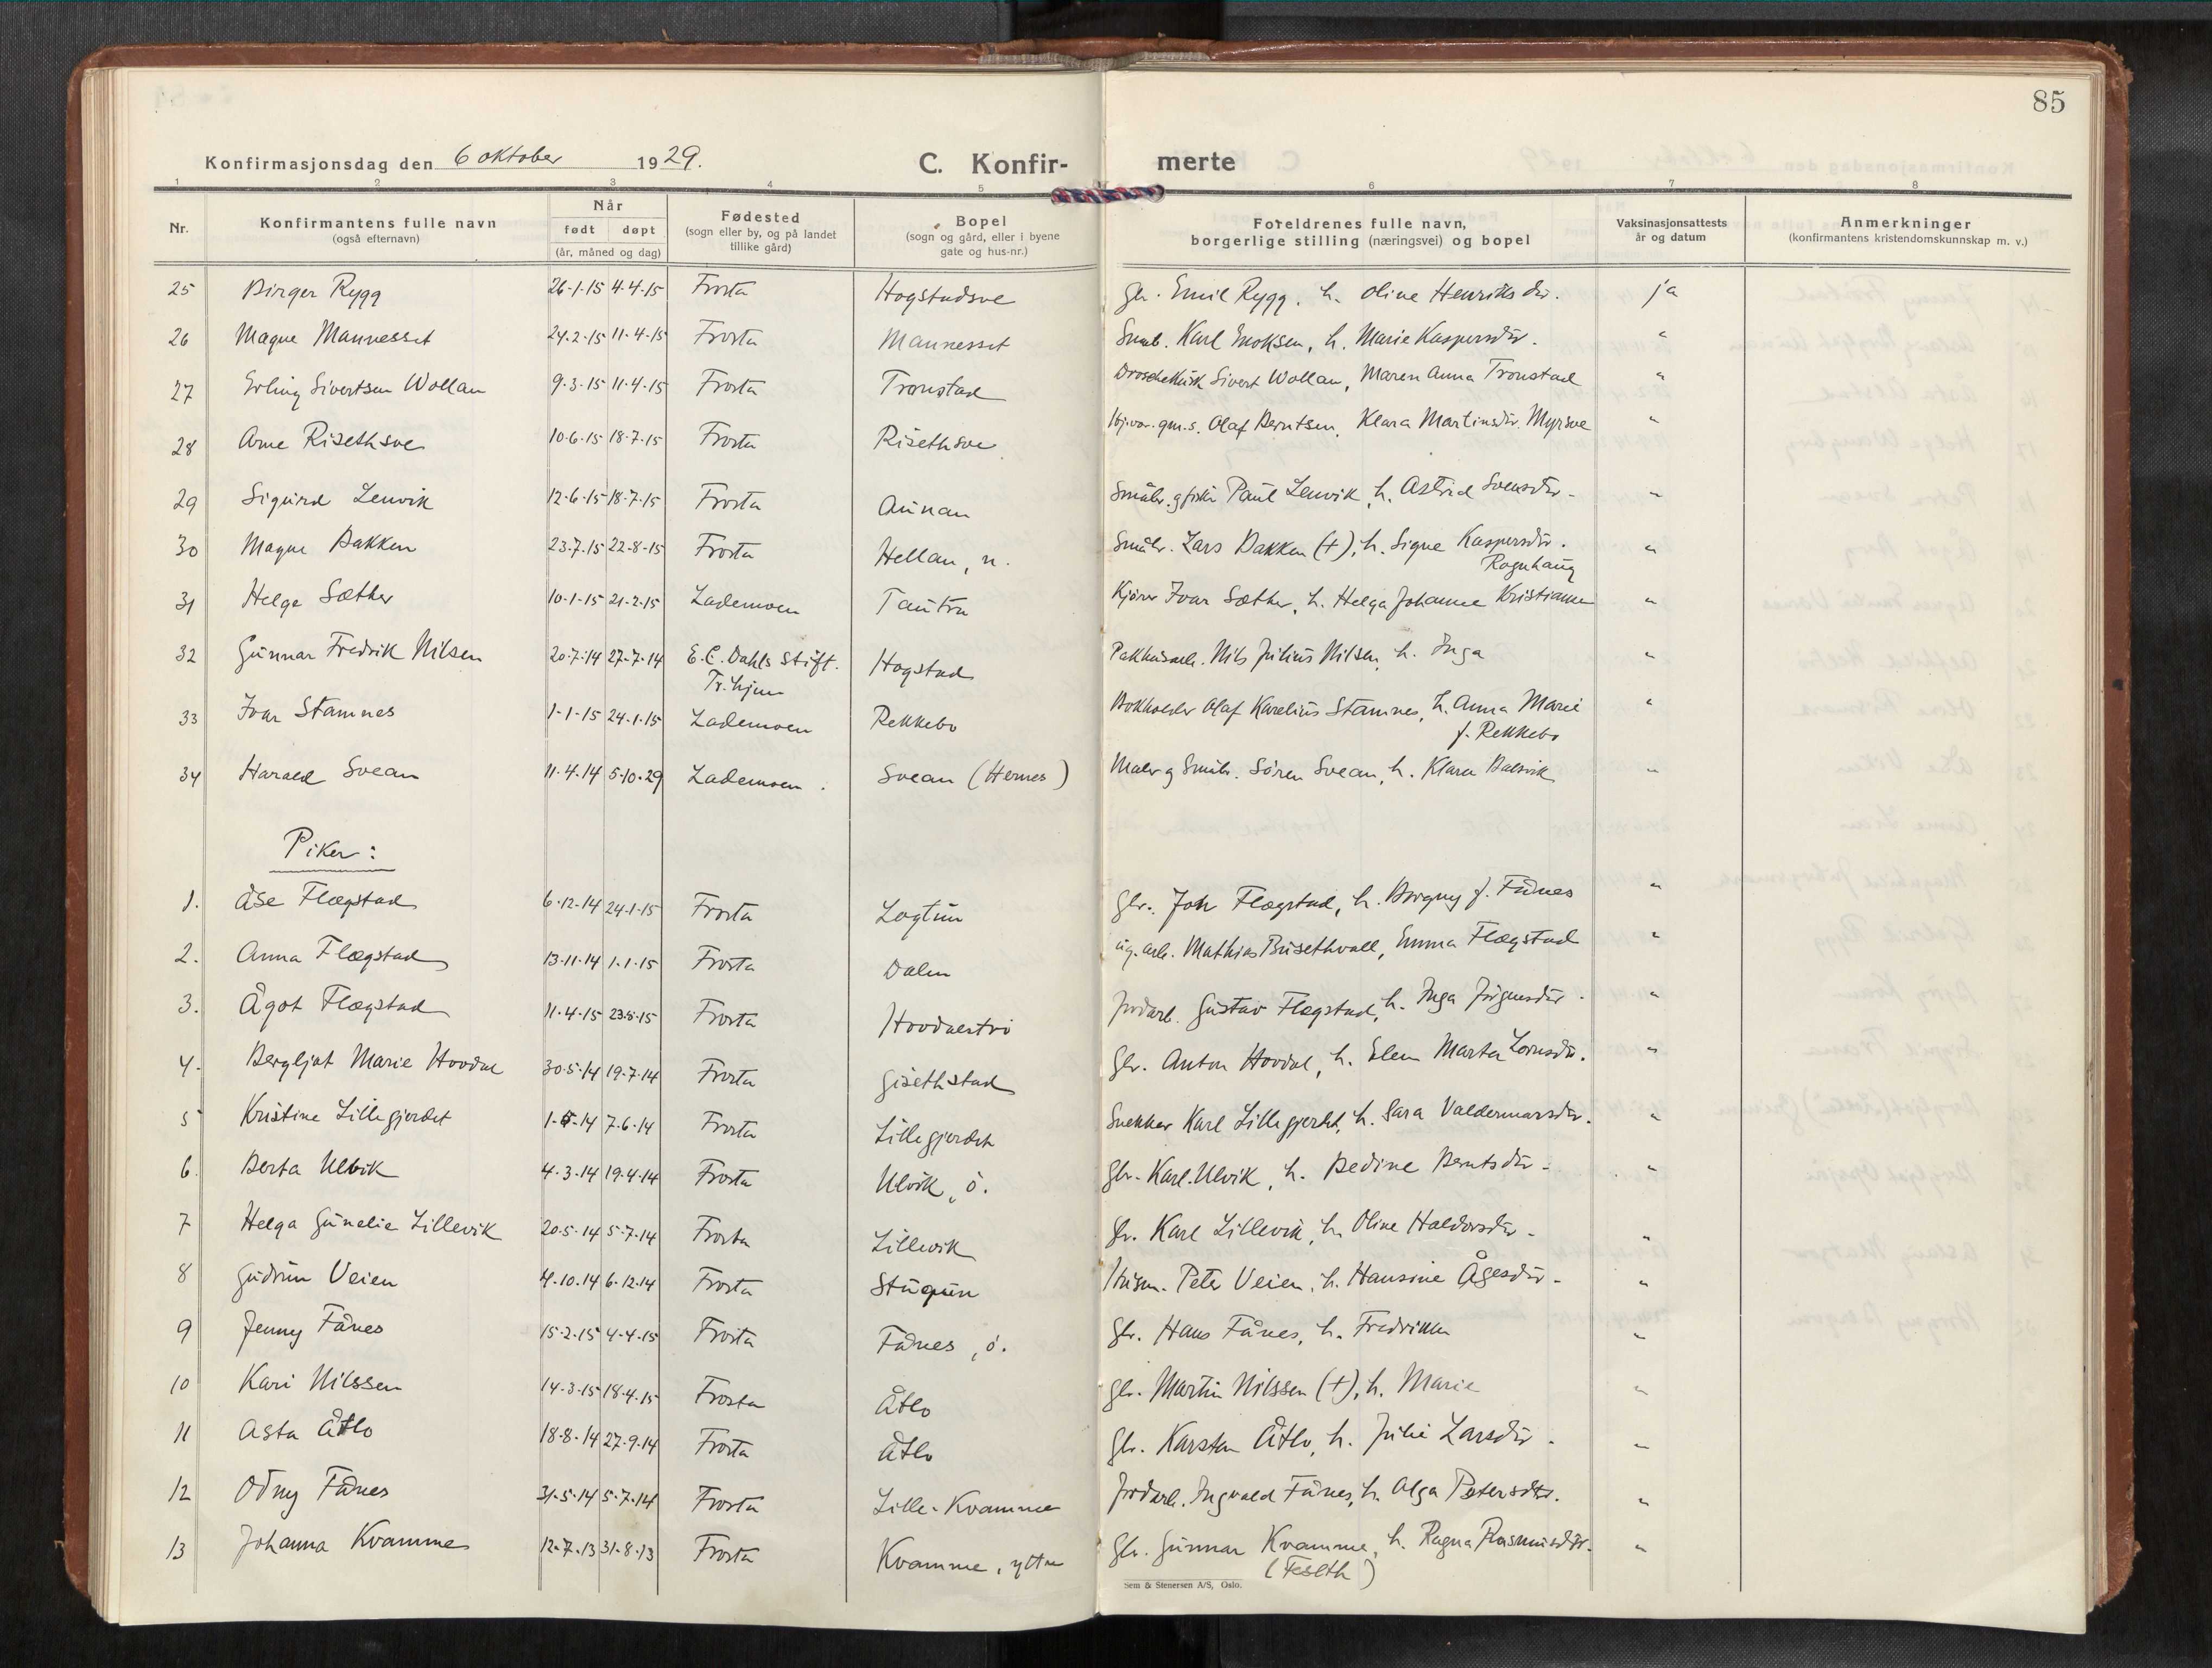 85
Konfirmasjonsdag den 6 oktober 1929. C. Konfir- merte
1 2 3 4 5 6 7 8
Nr. Konfirmantens fulle navn (også efternavn) Når født døpt (år, måned og dag) Fødested (sogn eller by, og på landet tillike gård) Bopel (sogn og gård, eller i byene gate og hus-nr.) Foreldrenes fulle navn, borgerlige stilling (næringsvei) og bopel Vaksinasjonsattests år og datum Anmerkninger (konfirmantens kristendomskunnskap m. v.)
25 Birger Rygg 26-1-15 4-4-15 Frosta Hogstadsve Gbr. Emil Rygg, h. Oline Henriksdtr. ja
26 Magne Mannesset 24-2-15 11-4-15 Frosta Mannesset Småb. Karl h. Marie Kaspersdtr. "
27 Erling Sivertsen Wollan 9-3-15 11-4-15 Frosta Tronstad Droschekusk Sivert Wollan, Maren Anna Tronstad "
28 Arne Risethsve 10-6-15 18-7-15 Frosta Risethsve Olaf Berntsen, Klara Martinsdtr. Myrsve "
29 Sigurd Lenvik 12-6-15 18-7-15 Frosta Aunan Småbr. og fisker Paul Lenvik, h. Astrid Svensdtr. "
30 Magne Bakken 23-7-15 22-8-15 Frosta Hellan, n. Småbr. Lars Bakken (+), h. Signe Kaspersdtr. "
Rognhaug
31 Helge Sæther 10-1-15 21-2-15 Lademoen Tautra Kjører Ivar Sæther, h. Helga Johanne Kristianne "
32 Gunnar Fredrik Nilsen 20-7-14 27-7-14 E.C. Dahls Stift. Hogstad Pakkhusarb. Nils Julius Nilsen, h. Inga "
Tr.hjem
33 Ivar Stamnes 1-1-15 24-1-15 Lademoen Rekkebo Bokholder Olaf Karelius Stamnes, h. Anna Marie "
f. Rekkebo
34 Harald Svean 11-4-14 5-10-29 Lademoen. Svean (Hernes) Maler og Småbr. Sören Svean, h. Klara Balsvik "
Piker:
1. Åse Flægstad 6-12-14 24-1-15 Frosta Logtun Gbr. Joh Flægstad, h. Borgny f. Fånes "
2. Anna Flægstad 13-11-14 1-1-15 Frosta Dalen arb. Mathias Busethvall, Emma Flægstad "
3. Ågot Flægstad 11-4-15 23-5-15 Frosta Hovdaestrø Jordarb. Gustav Flægstad, h. Inga Jörgensdtr. "
4. Bergljot Marie Hovdal 30-5-14 19-7-14 Frosta Gisethstad Gbr. Anton Hovdal, h. Elen Marta Lornsdtr. "
5 Kristine Lillegjerdet 1-5-14 7-6-14 Frosta Lillegjerdet Snekker Karl Lillegjerdet, h. Sara Valdemarsdtr. "
6. Berta Ulvik 4-3-14 19-4-14 Frosta Ulvik, ö. Gbr. Karl Ulvik, h. Bedine Berntsdtr. "
7 Helga Gunelie Lillevik 20-5-14 5-7-14 Frosta Lillevik Gbr. Karl Lillevik, h. Oline Haldorsdtr. "
8 Gudrun Veien 4-10-14 6-12-14 Frosta Stugun Husm. Peter Veien, h. Hansine Ågesdtr. "
9 Jenny Fånes 15-2-15 4-4-15 Frosta Fånes, ö. Gbr. Hans Fånes, h. Fredrikke "
10 Kari Nilssen 14-3-15 18-4-15 Frosta Åtlo Gbr. Martin Nilssen (+), h. Marie "
11 Asta Åtlo 18-8-14 27-9-14 Frosta Åtlo Gbr. Karsten Åtlo, h. Julie Larsdtr. "
12 Odny Fånes 31-5-14 5-7-14 Frosta Lille-Kvamme Jordarb. Ingvald Fånes, h. Olga Petersdtr. "
13 Johanna Kvamme 12-7-13 31-8-13 Frosta Kvamme, ytre Gbr. Gunnar Kvamme, h. Ragna Rasmusdtr. "
(Feseth)
Sem & Stenersen A/S, Oslo.